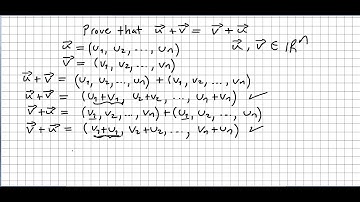 Prove that u⃗ + v⃗ = v⃗ + u⃗
u⃗ = (u₁, u₂, ..., uₙ) u⃗, v⃗ ∈ ℝⁿ
v⃗ = (v₁, v₂, ..., vₙ)
u⃗ + v⃗ = (u₁, u₂, ..., uₙ) + (v₁, v₂, ..., vₙ)
u⃗ + v⃗ = (u₁+v₁, u₂+v₂, ..., uₙ+vₙ) ✓
v⃗ + u⃗ = (v₁, v₂, ..., vₙ) + (u₁, u₂, ..., uₙ)
v⃗ + u⃗ = (v₁+u₁, v₂+u₂, ..., vₙ+uₙ) ✓